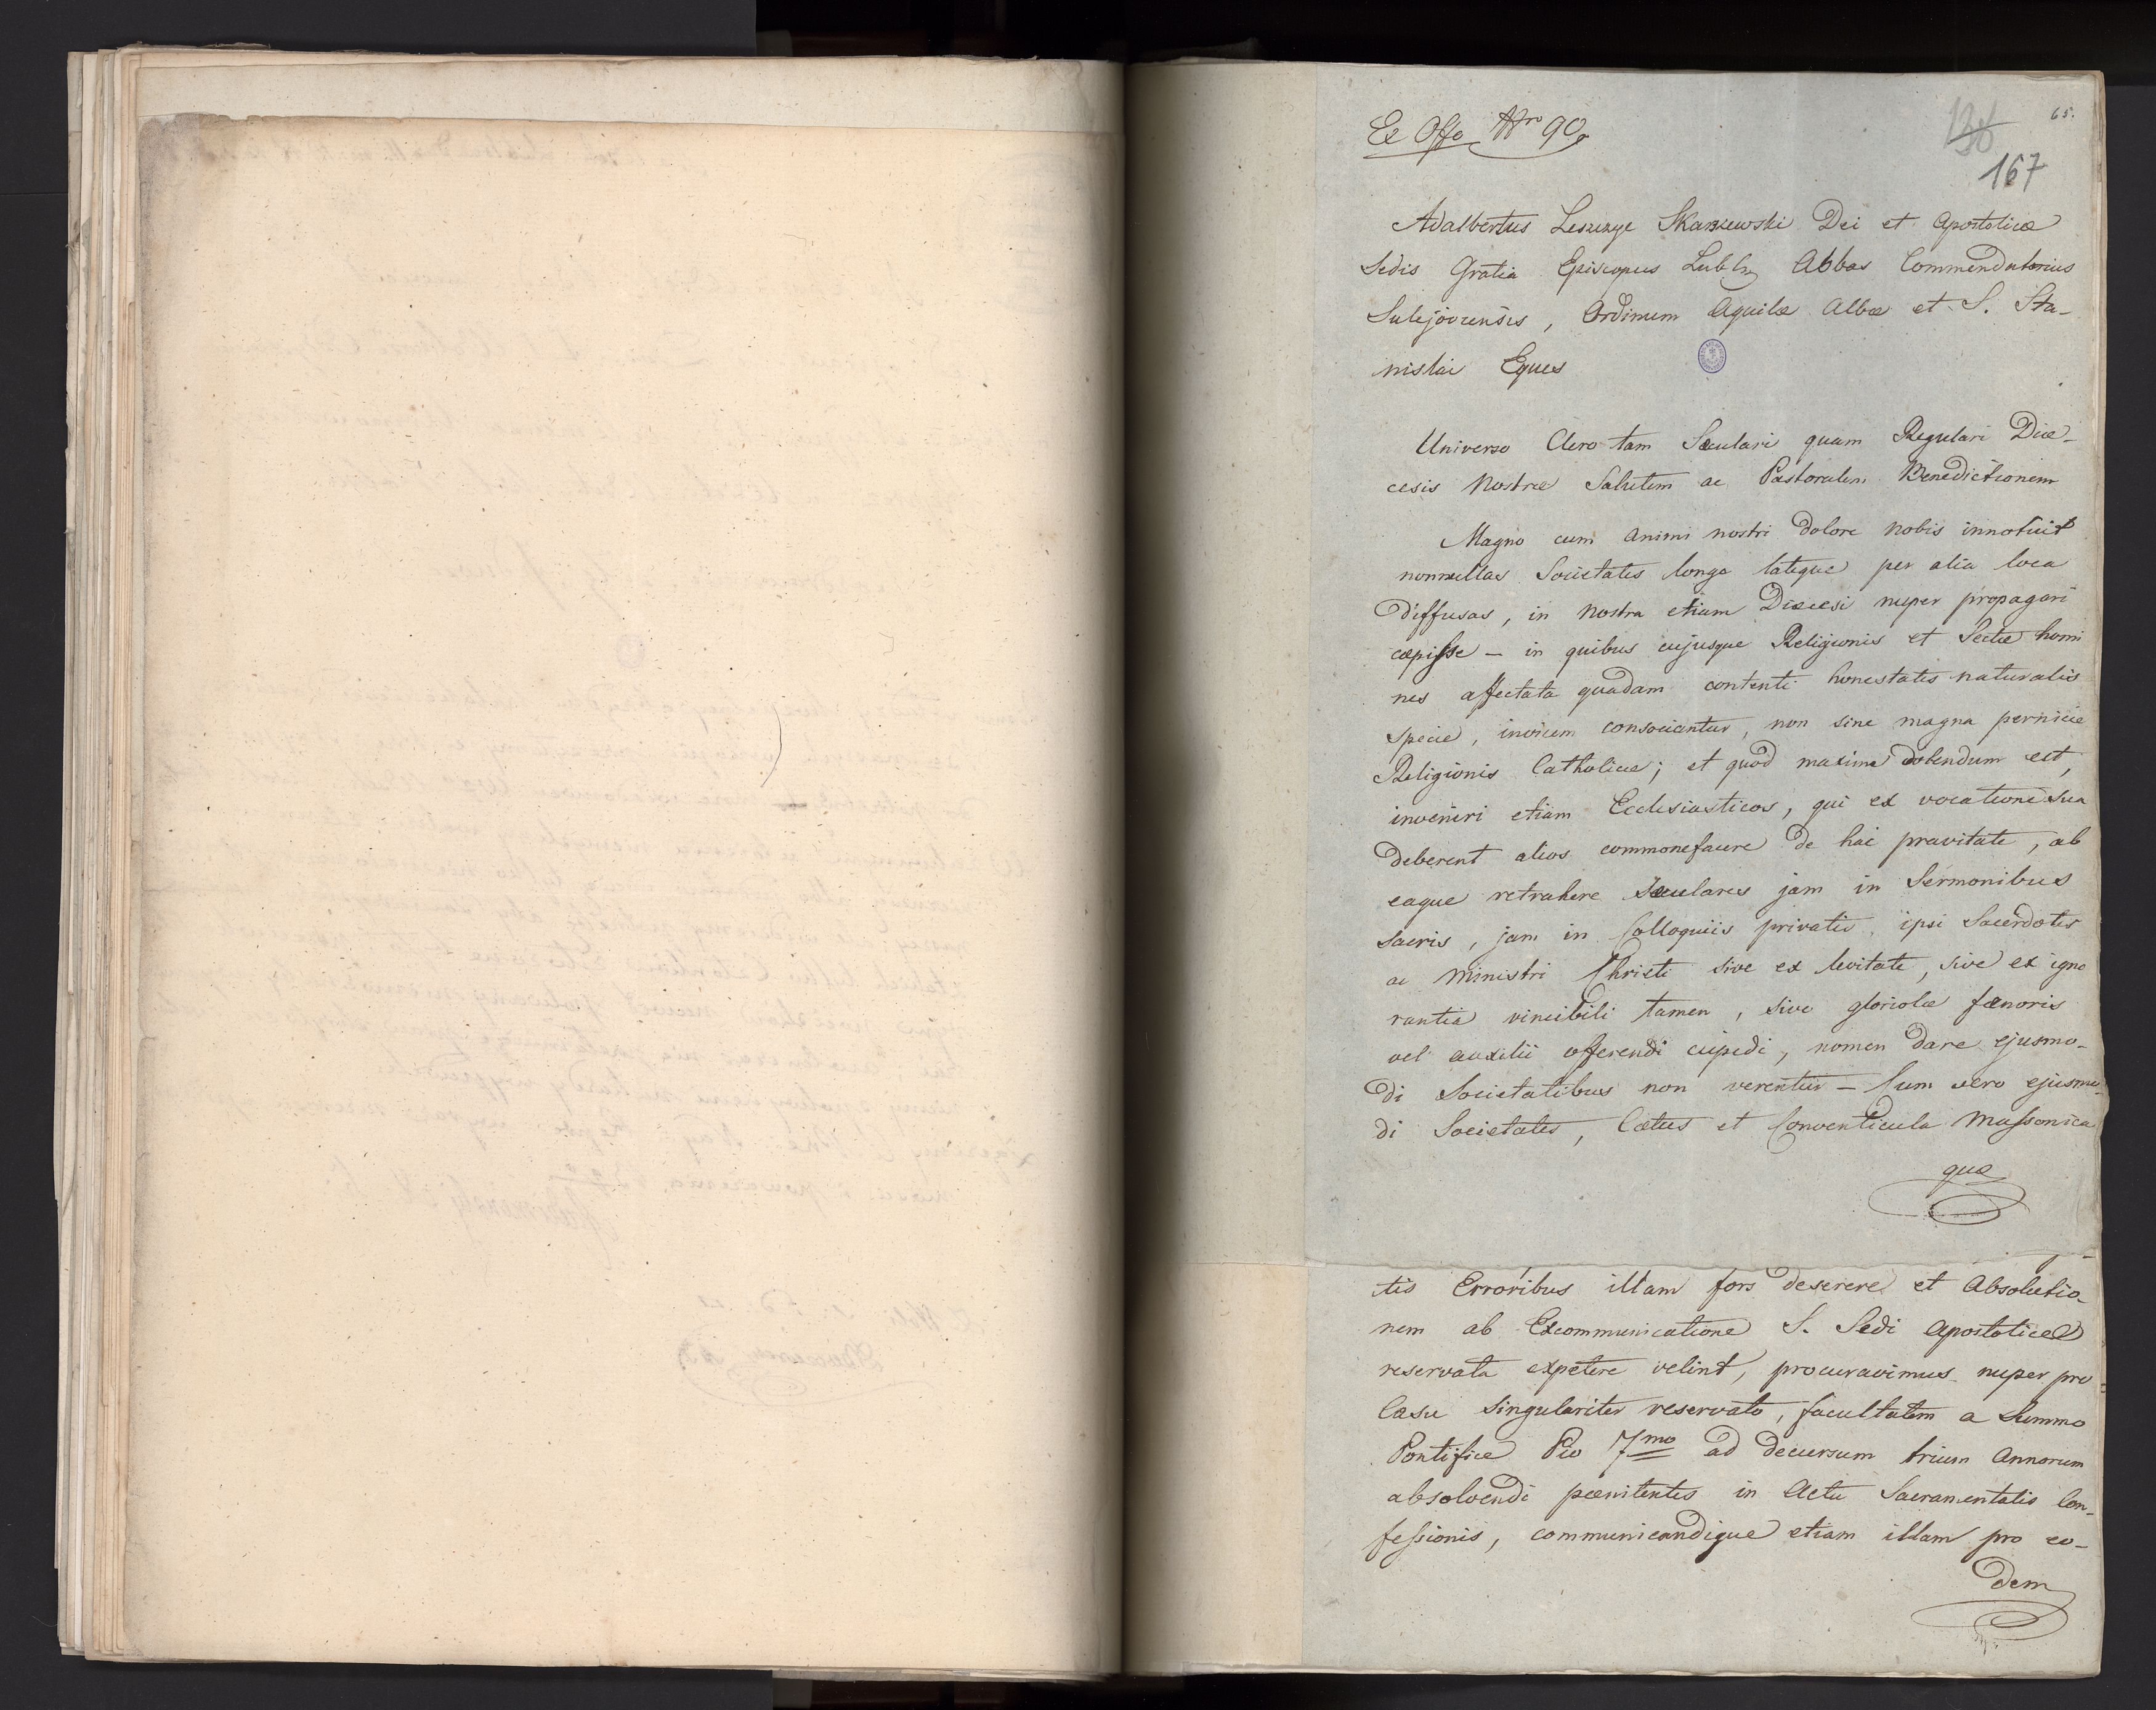 Ex Offo Nro 90
65.
138
167
Adalbertus Leszczyc Skarszewski Dei et Apostolicæ
Sedis Gratia Episcopus Lubln Abbas Commendatorius
Sulejoviensis, Ordinum Aquilæ Albæ et S. Sta-
nislai Eques
Universo Clero tam Sæculari quam Regulari Diæ-
cesis Nostræ Salutem ac Pastoralem Benedictionem
Magno cum Animi nostri dolore nobis innotuit
nonnullas Societates longe lateque per alia loca
diffusas, in Nostra etiam Diæcesi nuper propagari
cæpisse – in quibus cujusque Religionis et Sectæ homi
nes affectata quadam contenti honestatis naturalis
specie, invicem consociantur, non sine magna pernicie
Religionis Catholicæ; et quod maxime dolendum est,
inveniri etiam Ecclesiasticos, qui ex vocatione sua
deberent alios commonefacere de hac pravitate, ab
eaque retrahere Sæculares jam in Sermonibus
sacris, jam in Colloquiis privatis, ipsi Sacerdotes
ac Ministri Christi sive ex levitate, sive ex igno
rantia vincibili tamen, sive gloriolæ fænoris
vel auxilii offerendi cupidi, nomen dare ejusmo-
di Societatibus non verentur – Cum vero ejusmo-
di Societates, Cætus et Conventicula Massonica
quæ
tis Erroribus illam fors deserere et Absolutio-
nem ab Excommunicatione S. Sedi Apostolicæ
reservata expetere velint, procuravimus nuper pro
Casu singulariter reservato, facultatem a Summo
Pontifice Pio 7mo ad decursum trium Annorum
absolvendi pænitentes in Actu Sacramentalis Con-
fessionis, communicandique etiam illam pro eo-
dem